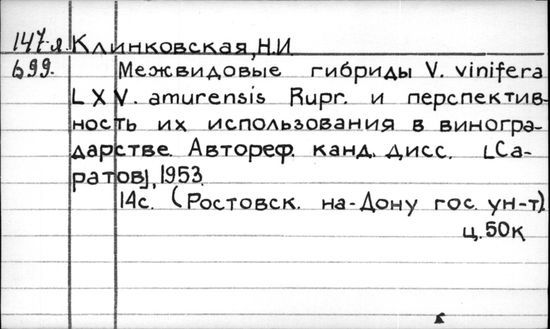 147-л. Клинковская, Н.И.
699. Межвидовые гибриды V. vinifera
L X V. amurensis Rupr. и перспектив-
ность их использования в виногра-
дарстве. Автореф. канд. дисс. [Са-
ратов], 1953.
14с. (Ростовск. на-Дону гос. ун-т).
ц. 50к